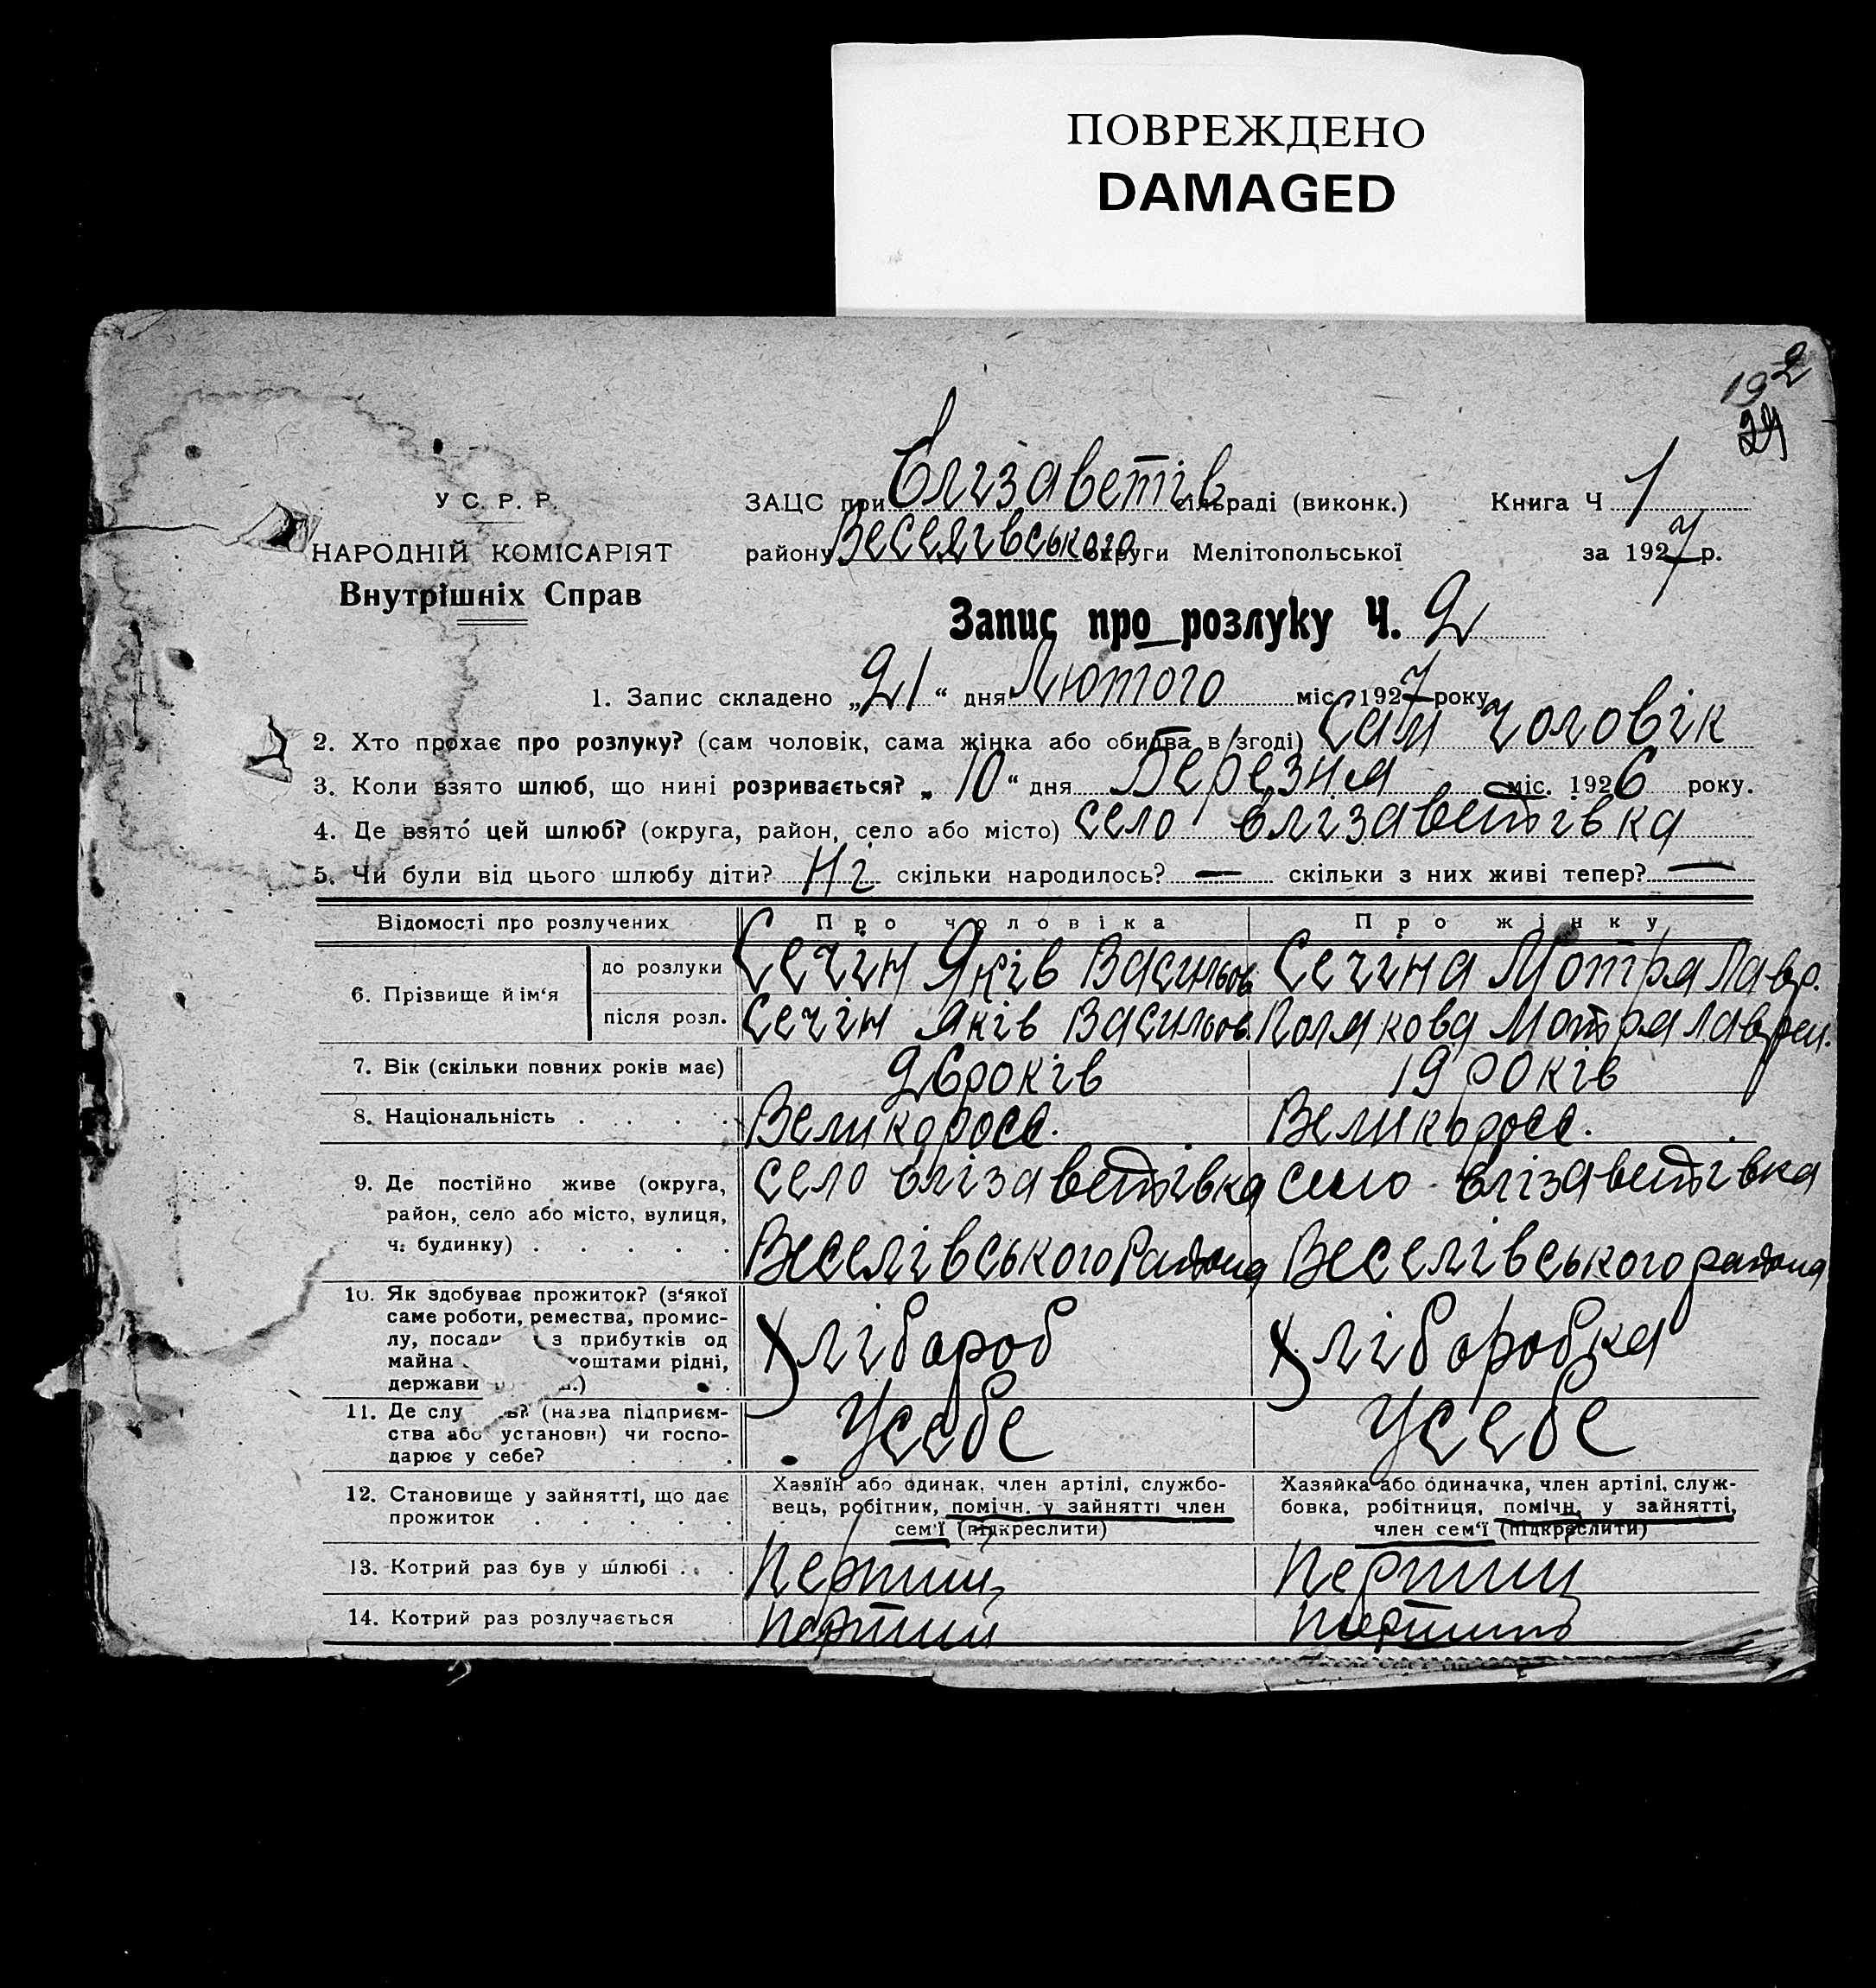 ПОВРЕЖДЕНО
DAMAGED
192
24
У С. Р. Р.
НАРОДНІЙ КОМІСАРІЯТ
Внутрішніх Справ
ЗАЦС при Єлізаветів сільраді (виконк.) Книга Ч 1
району Веселівського округи Мелітопольської за 1927 р.
Запис про розлуку Ч. 2
1. Запис складено „21“ дня Лютого міс. 1927 року
2. Хто прохає про розлуку? (сам чоловік, сама жінка або обидва в згоді) Сам чоловік
3. Коли взято шлюб, що нині розривається? „10“ дня Березня міс. 1926 року.
4. Де взято цей шлюб? (округа, район, село або місто) село Єлізаветівка
5. Чи були від цього шлюбу діти? Ні скільки народилось? — скільки з них живі тепер? —
Відомості про розлучених Про чоловіка Про жінку
6. Прізвище й ім‘я
до розлуки Сечін Яків Васильов Сечіна Мотря Лавр.
після розл. Сечін Яків Васильов. Полякова Мотря Лаврен.
7. Вік (скільки повних років має) 26 років 19 років
8. Національність . . . . Великоросс. Великоросс.
9. Де постійно живе (округа, село Єлізаветівка село Єлізаветівка
район, село або місто, вулиця,
ч. будинку) . . . . . Веселівського района Веселівського района
10. Як здобуває прожиток? (з‘якої
саме роботи, ремества, промис-
лу, посади з прибутків од Хлібороб Хліборобка
майна коштами рідні,
держави
11. Де слу (назва підприєм-
ства або установи) чи госпо- Усебе Усебе
дарює у себе? . . .
12. Становище у зайнятті, що дає
прожиток . . . . .
Хазяїн або одинак, член артілі, службо-
вець, робітник, помічн. у зайнятті член
сем‘ї (підкреслити)
Хазяйка або одиначка, член артілі, служ-
бовка, робітниця, помічн. у зайнятті,
член сем‘ї (підкреслити)
13. Котрий раз був у шлюбі . . . Перший Перший
14. Котрий раз розлучається перший перший